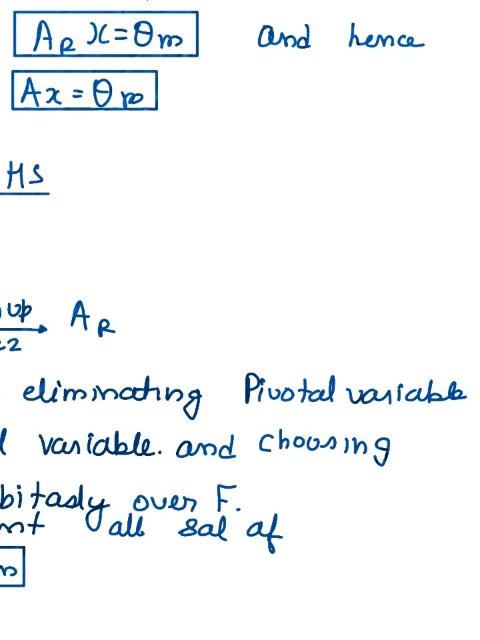 A_R x = θ_m and hence
Ax = θ_m
HS
up
A_R
eliminating Pivotal variable
l variable. and choosing
bitasly over F.
nt all sol of